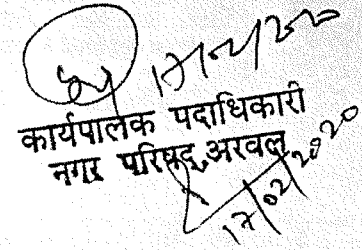 कार्यपालक पदाधिकारी
नगर परिषद्,अरवल
17/02/2020